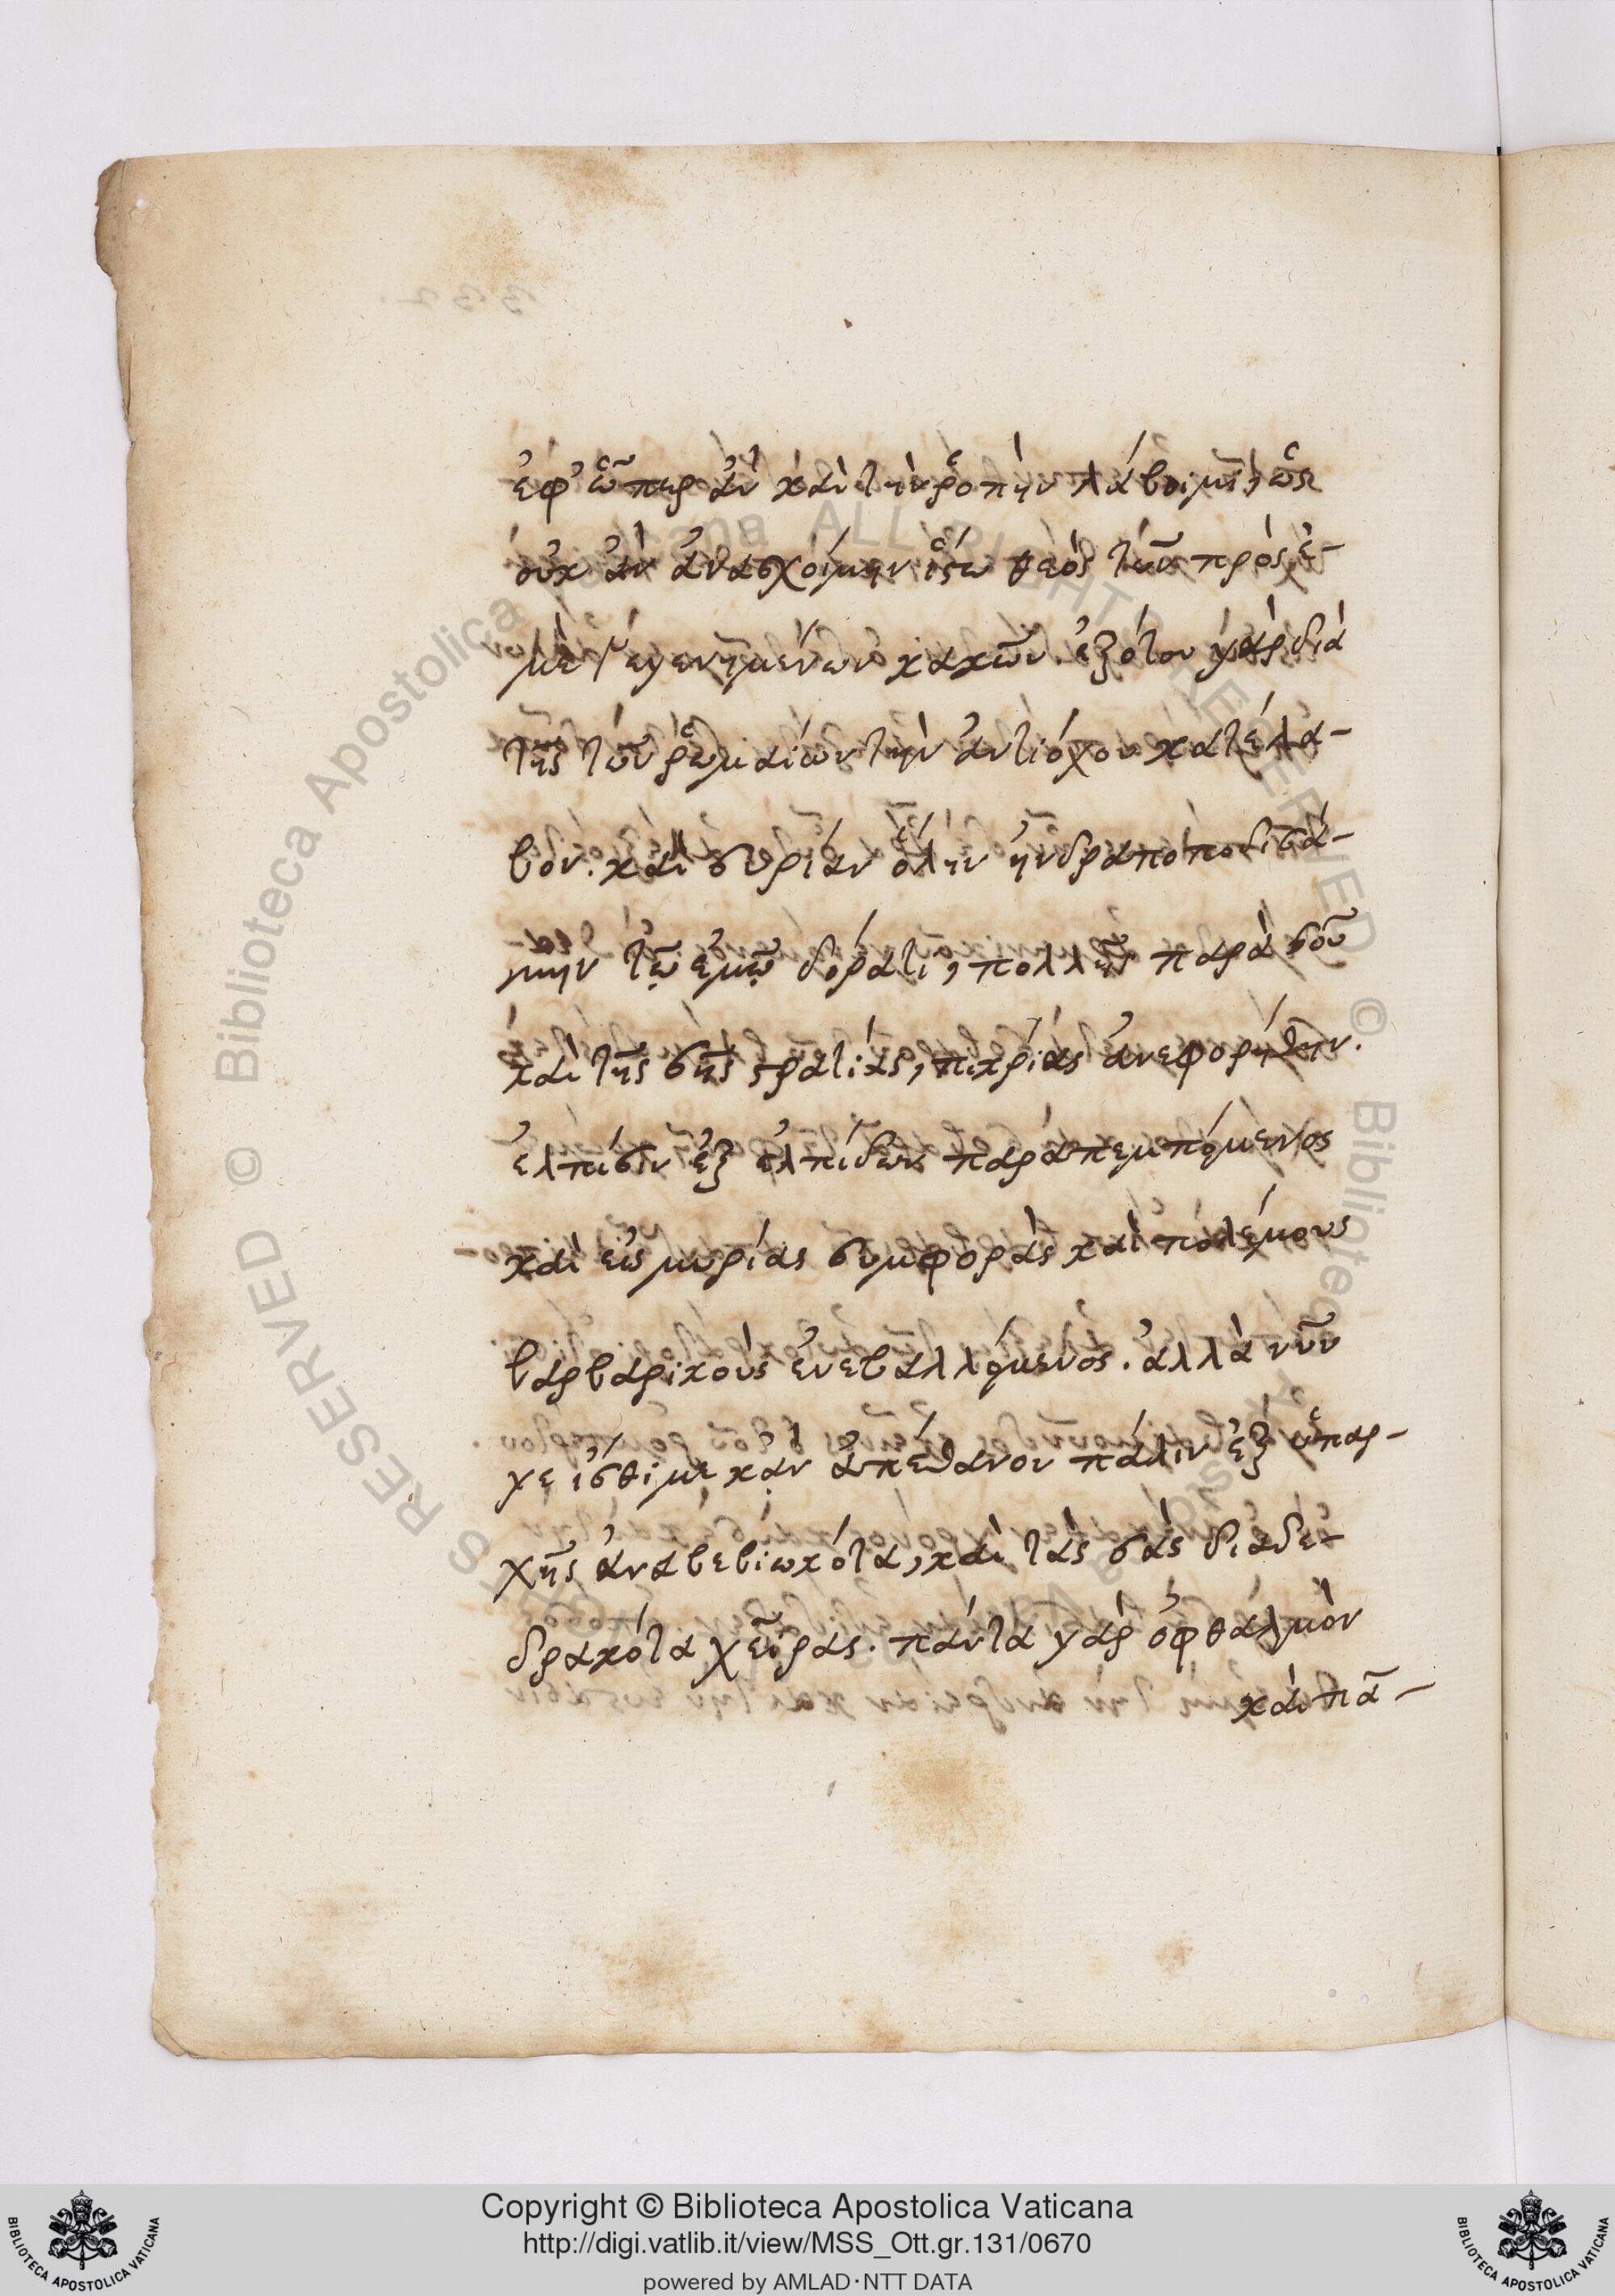 ἐφ' ὧπερ ἂν καὶ τὴν ῥοπὴν λάβοιμι, ὡς
οὐκ ἂν ἀνασχοίμην ἴστω θεὸς τῶν πρὸς ἐ-
μὲ γεγενημένων κακῶν. ἐξότου γὰρ διὰ
τῆς τῶν ῥωμαίων τὴν ἀντιόχου κατέλα-
βον. καὶ συρίαν ὅλην ἠνδραποποδισά-
μην τῷ ἐμῷ δόρατι, πολλῆς παρὰ σοῦ
καὶ τῆς σῆς στρατιᾶς, πικρίας ἀνεφορήθην.
ἐλπίσιν ἐξ ἐλπίδων παραπεμπόμενος
καὶ εἰς μυρίας συμφορὰς καὶ πολέμους
βαρβαρικοὺς ἐνεβαλλόμενος. ἀλλὰ νῦν
γε ἴσθι με κᾂν ἀπέθανον πάλιν ἐξ ὑπαρ-
χῆς ἀναβεβιωκότα, καὶ τὰς σὰς διαδε-
δρακότα χεῖρας. πάντα γὰρ ὀφθάλμὸν
καὶ πᾶ-
Copyright © Biblioteca Apostolica Vaticana
http://digi.vatlib.it/view/MSS_Ott.gr.131/0670
powered by AMLAD·NTT DATA
BIBLIOTECA APOSTOLICA VATICANA
BIBLIOTECA APOSTOLICA VATICANA